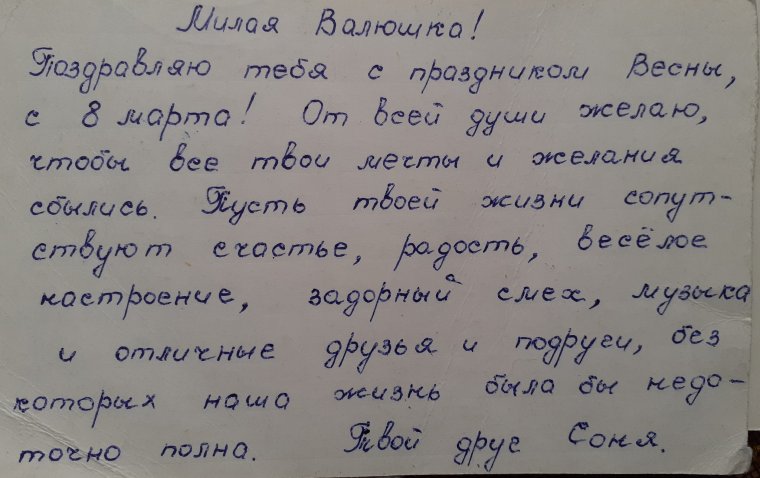 Милая Валюшка!
Поздравляю тебя с праздником Весны,
с 8 марта! От всей души желаю,
чтобы все твои мечты и желания
сбылись. Пусть твоей жизни сопут-
ствуют счастье, радость, весёлое
настроение, задорный смех, музыка
и отличные друзья и подруги, без
которых наша жизнь была бы недо-
точно полна. Твой друг Соня.